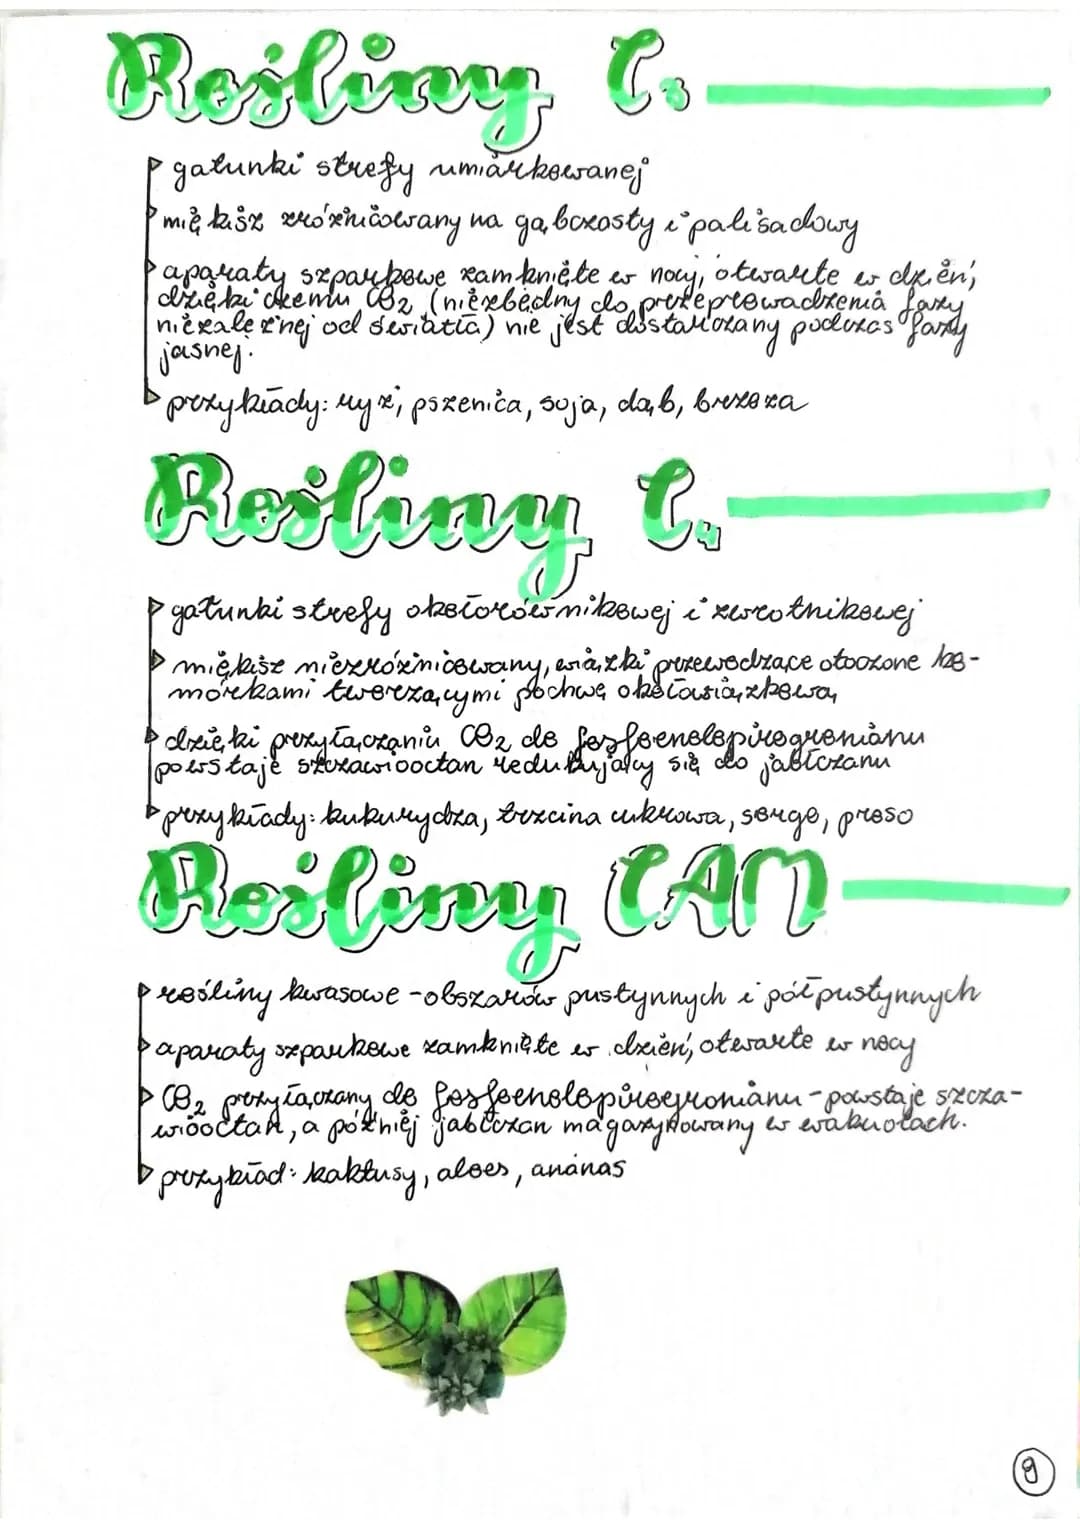 Rośliny C₃
gatunki strefy umiarkowanej
miękisz zróżnicowany na gąbczasty i palisadowy
aparaty szparkowe zamknięte w nocy, otwarte w dzień,
dzięki czemu CO₂ (niezbędny do przeprowadzenia fazy
niezależnej od światła) nie jest dostarczany podczas fazy
jasnej.
przykłady: ryż, pszenica, soja, dąb, brzoza
Rośliny C₄
gatunki strefy okołorównikowej i zwrotnikowej
miękisz niezróżnicowany, wiązki przewodzące otoczone ko-
mórkami tworzącymi pochwę okołowiązkową
dzięki przyłączaniu CO₂ do fosfoenolopirogronianu
powstaje szczawiooctan redukujący się do jabłczanu
przykłady: kukurydza, trzcina cukrowa, sorgo, proso
Rośliny CAM
rośliny kwasowe - obszarów pustynnych i półpustynnych
aparaty szparkowe zamknięte w dzień, otwarte w nocy
CO₂ przyłączany do fosfoenolopirogronianu - powstaje szcza-
wiooctan, a później jabłczan magazynowany w wakuolach.
przykład: kaktusy, aloes, ananas
9